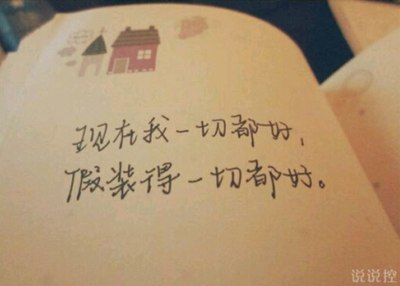 现在我一切都好,
假装得一切都好。
说说控